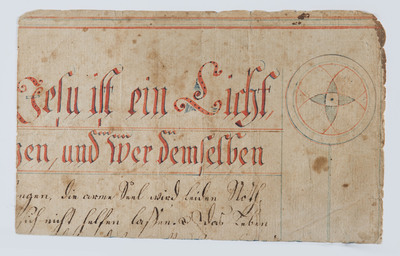 Jesu ist ein Licht,
gen, und wer demselben
ungen, die arme Seel wird leiden Noth,
sich nicht helfen lassen. das Leben